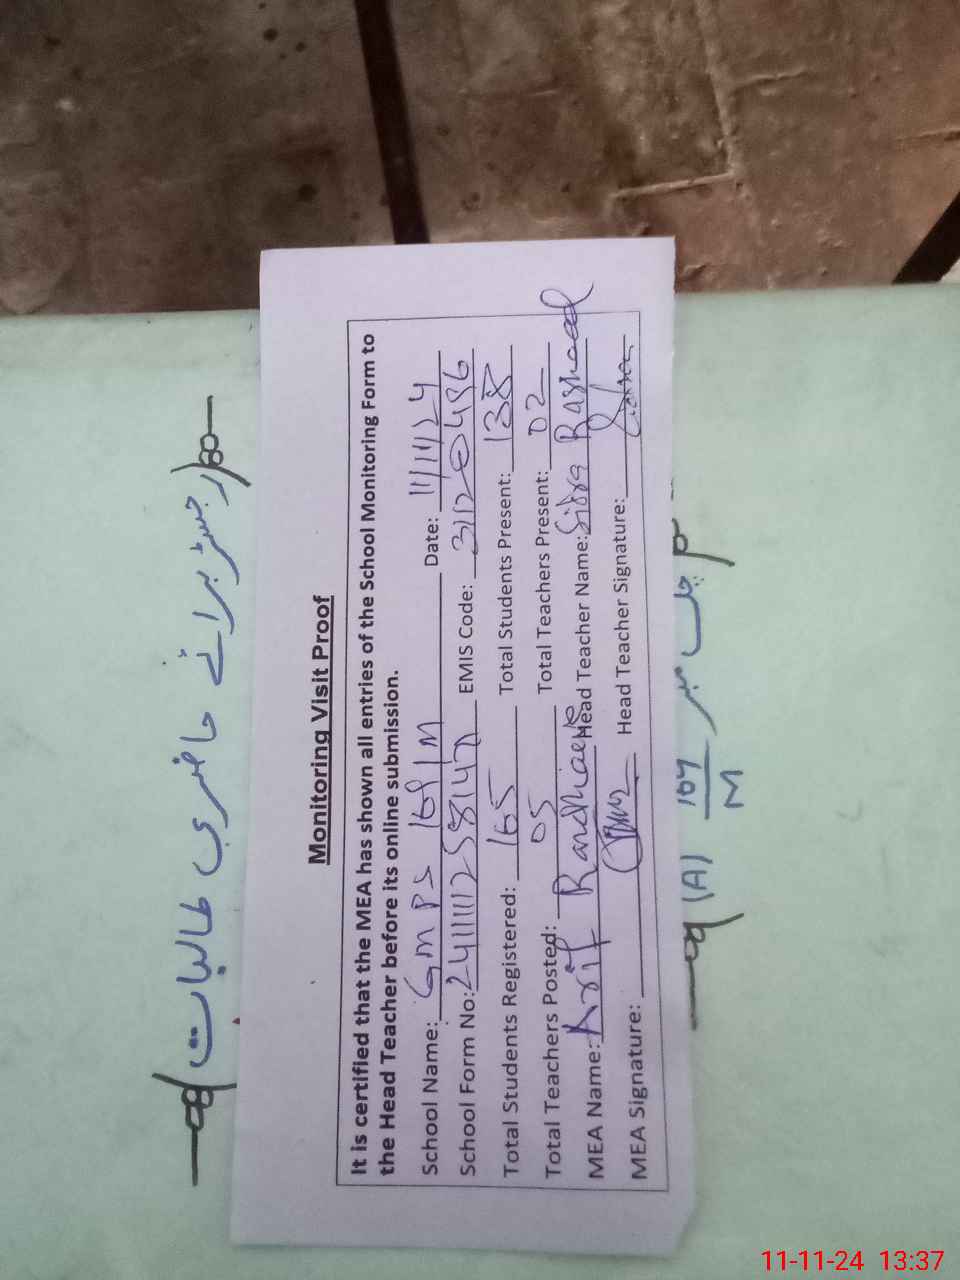 رجسٹر برائے حاضری طالبات
Monitoring Visit Proof
It is certified that the MEA has shown all entries of the School Monitoring Form to
the Head Teacher before its online submission.
School Name: GMPS 169/M Date: 11/11/24
School Form No: EMIS Code: 31120436
Total Students Registered: 165 Total Students Present: 138
Total Teachers Posted: 05 Total Teachers Present: 02
MEA Name: Arif Randhawa Head Teacher Name: Sidra Rasheed
MEA Signature: Head Teacher Signature: Sidra
(A) 169/M چک نمبر
11-11-24 13:37